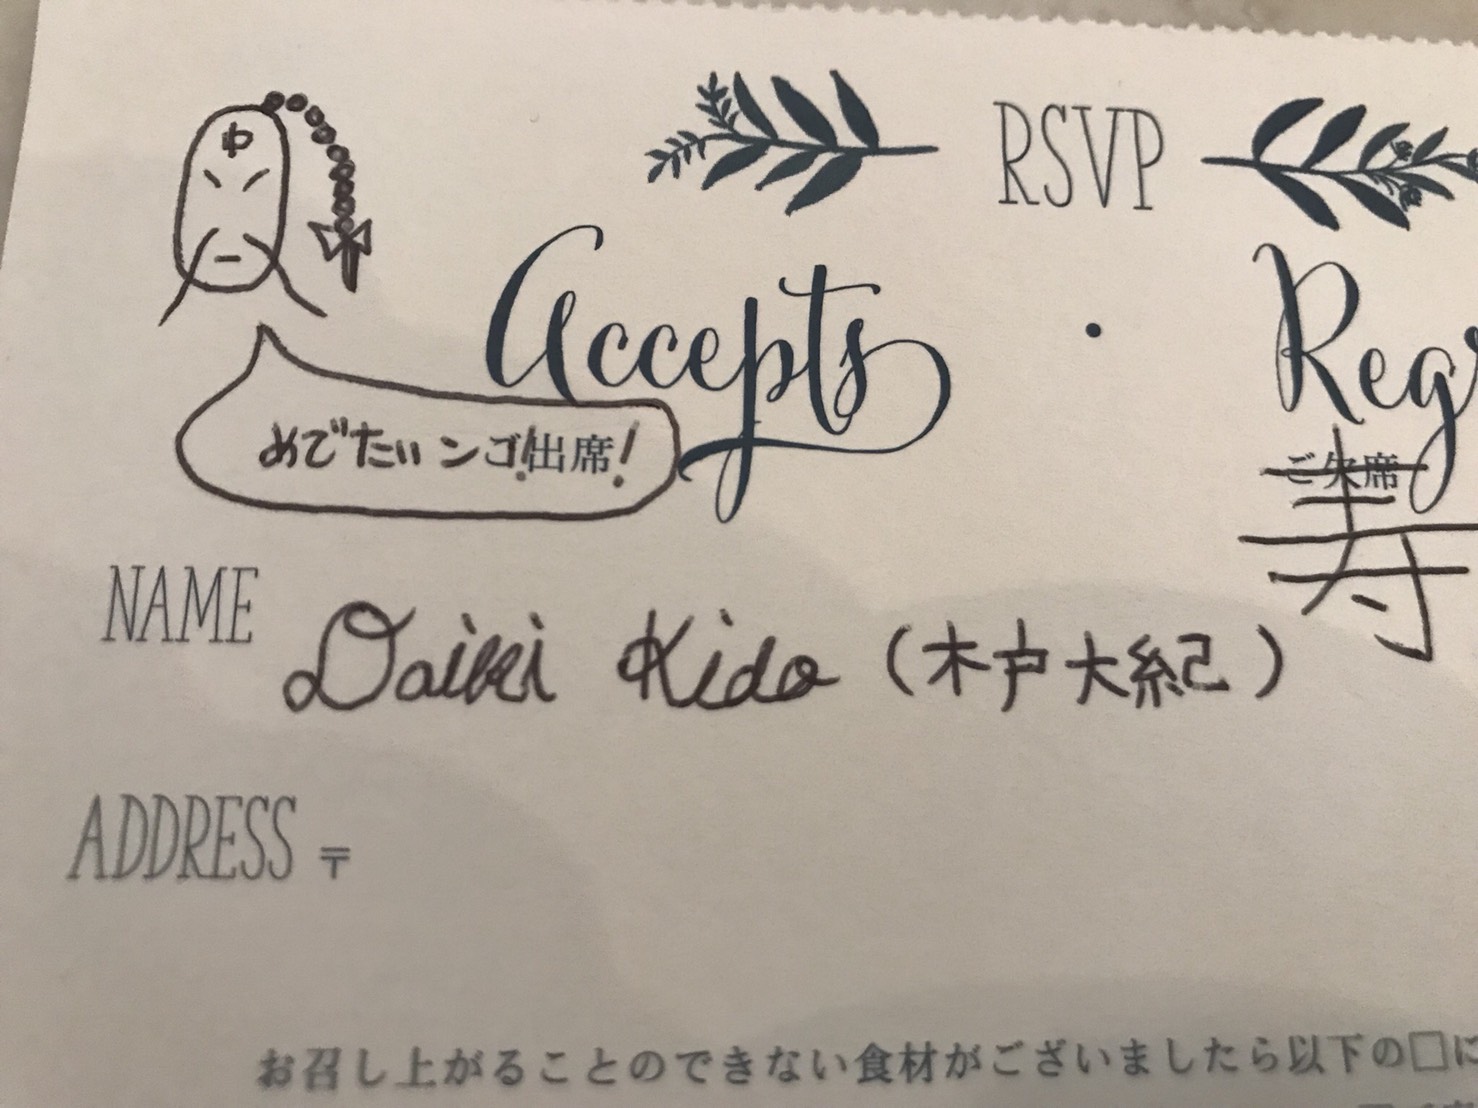 中
RSVP
Accepts ・ Reg
めでたいンゴ!出席!
ご欠席
寿
NAME Daiki Kido (木戸大紀)
ADDRESS 〒
お召し上がることのできない食材がございましたら以下の□に